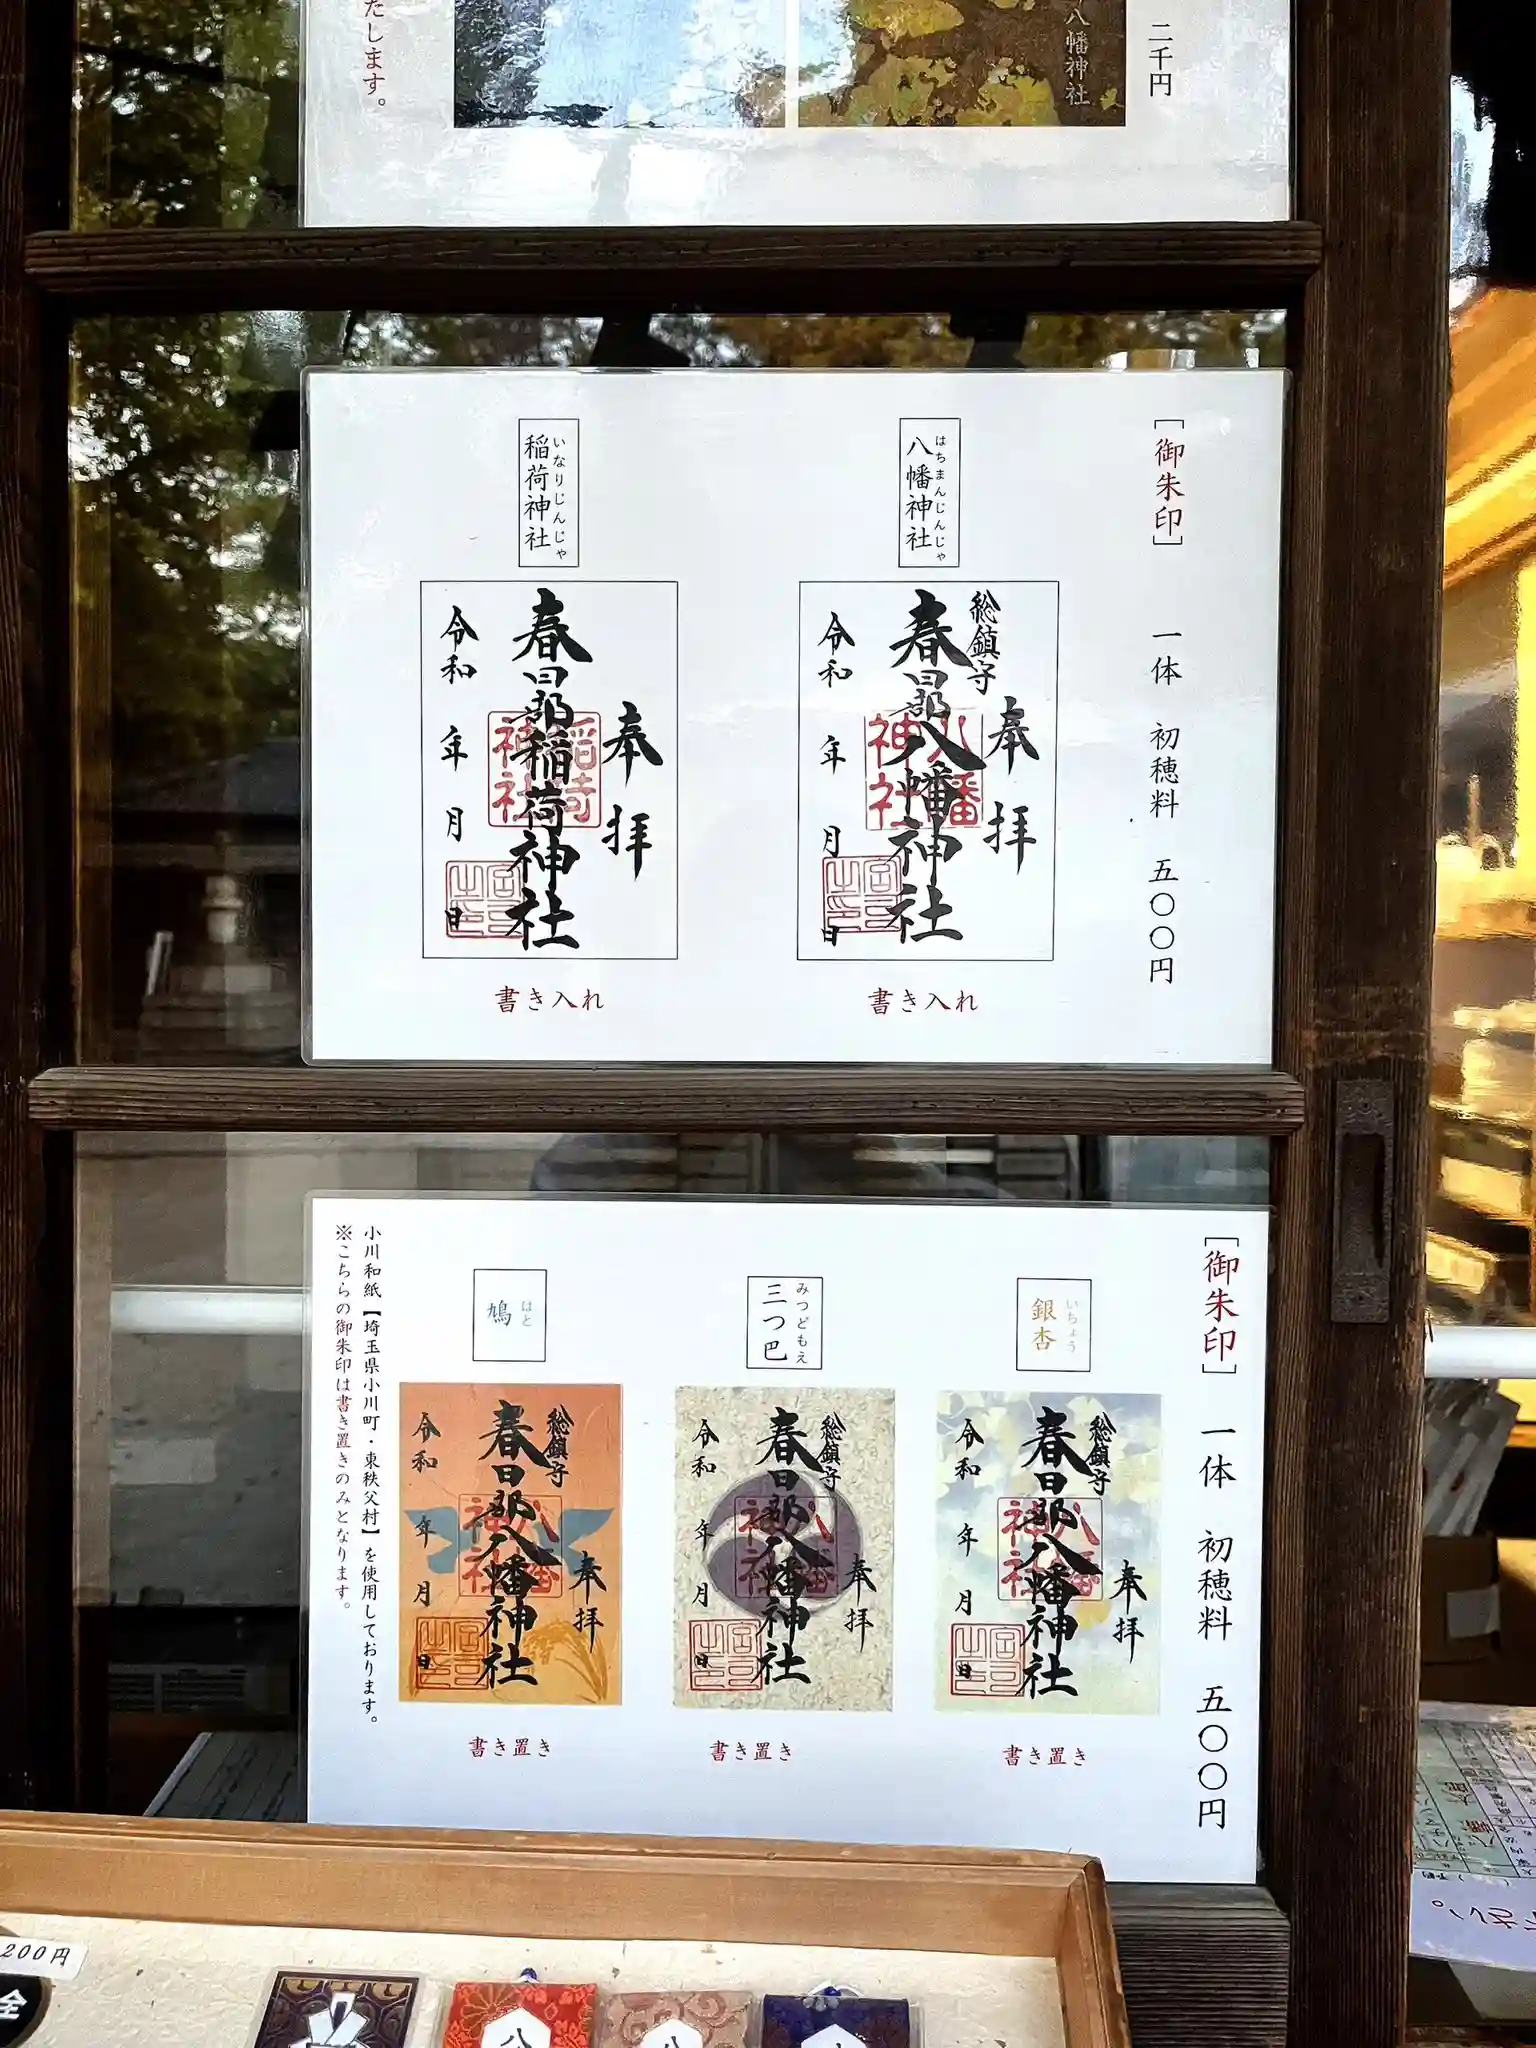 たします。
八幡神社
二千円
［御朱印］ 一体 初穂料 五〇〇円
はちまんじんじゃ
八幡神社
総鎮守
奉拝
春日部八幡神社
八幡神社
令和 年 月 日
書き入れ
いなりじんじゃ
稲荷神社
奉拝
春日部稲荷神社
稲荷神社
令和 年 月 日
書き入れ
［御朱印］ 一体 初穂料 五〇〇円
いちょう
銀杏
総鎮守
奉拝
春日部八幡神社
八幡神社
令和 年 月 日
書き置き
みつどもえ
三つ巴
総鎮守
奉拝
春日部八幡神社
八幡神社
令和 年 月 日
書き置き
はと
鳩
総鎮守
奉拝
春日部八幡神社
八幡神社
令和 年 月 日
書き置き
小川和紙【埼玉県小川町・東秩父村】を使用しております。
※こちらの御朱印は書き置きのみとなります。
200円
全
八